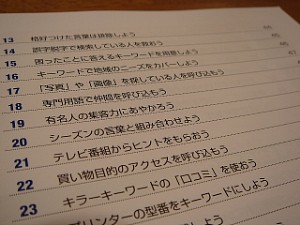 13 格好つけた言葉は排除しよう
14 誤字脱字で検索している人を救おう 45
15 困ったことに答えるキーワードを用意しよう 46
16 キーワードで地域のニーズをカバーしよう 47
17 「写真」や「画像」を探している人を呼び込もう
18 専門用語で仲間を呼び込もう
19 有名人の集客力にあやかろう
20 シーズンの言葉と組み合わせよう
21 テレビ番組からヒントをもらおう
22 買い物目的のアクセスを呼び込もう
23 キラーキーワードの「口コミ」を使おう
プリンターの型番をキーワードにしよう